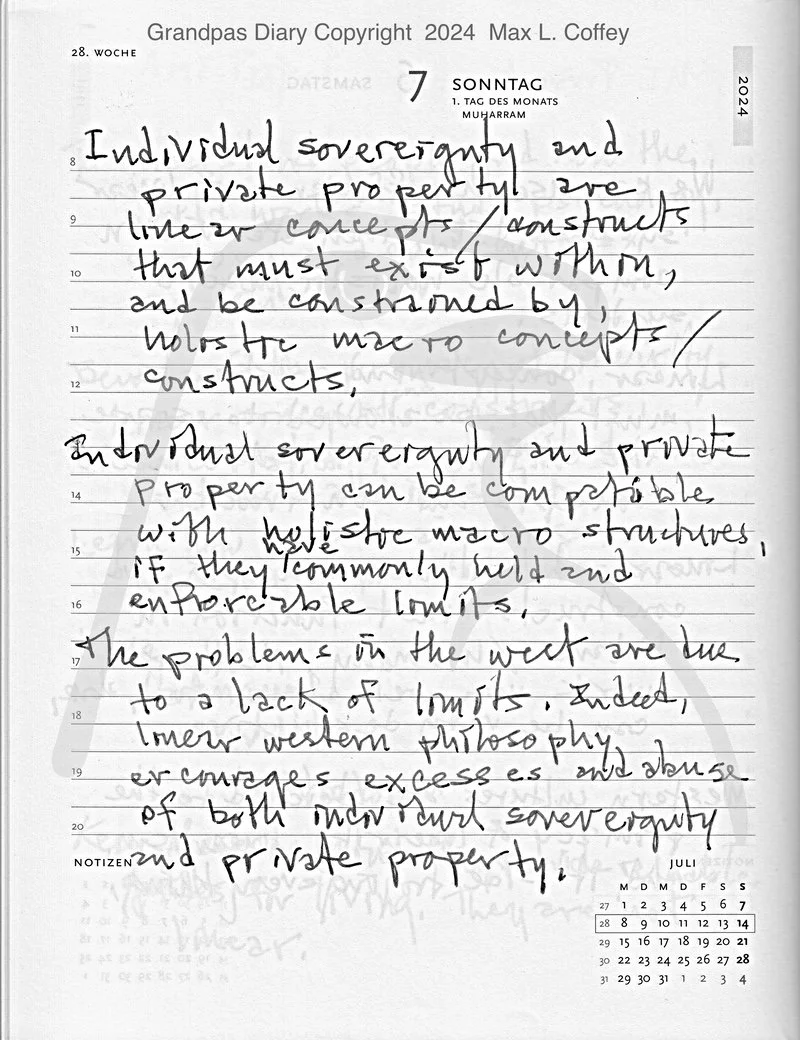 Grandpas Diary Copyright 2024 Max L. Coffey
28. WOCHE
7 SONNTAG
1. TAG DES MONATS
MUHARRAM
2024
8 Individual sovereignty and
private property are
9 linear concepts/constructs
10 that must exist within,
and be constrained by,
11 holistic macro concepts/
12 constructs.
Individual sovereignty and private
14 property can be compatible
with holistic macro structures,
have
15 if they commonly held and
16 enforceable limits.
17 The problems in the west are due
to a lack of limits. Indeed,
18 linear western philosophy
19 encourages excesses and abuse
of both individual sovereignty
20
NOTIZEN and private property.
JULI
M D M D F S S
27 1 2 3 4 5 6 7
28 8 9 10 11 12 13 14
29 15 16 17 18 19 20 21
30 22 23 24 25 26 27 28
31 29 30 31 1 2 3 4